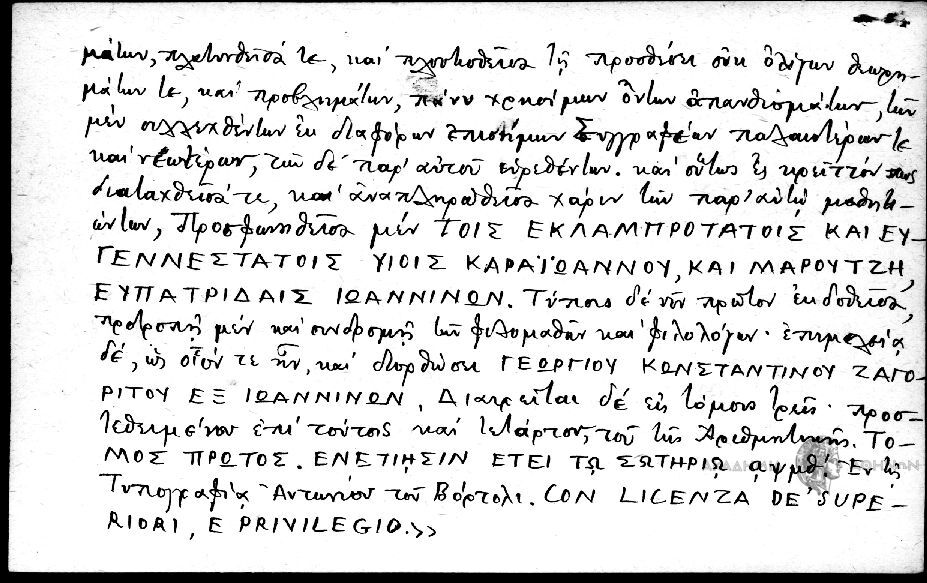 μάτων, πλατυνθεῖσά τε, καὶ πλουτισθεῖσα τῇ προσθέσει οὐκ ὀλίγων θεωρη-
μάτων τε, καὶ προβλημάτων, πάνυ χρησίμων ὄντων ἀπανθισμάτων, τῶν
μὲν συλλεχθέντων ἐκ διαφόρων ἐπιστήμων Συγγραφέων παλαιοτέρων τε
καὶ νεωτέρων, τῶν δὲ παρ' αὐτοῦ εὑρεθέντων. καὶ οὕτως ἐς κρεῖττόν πως
διαταχθεῖσά τε, καὶ ἀναπληρωθεῖσα χάριν τῶν παρ' αὐτῷ μαθητ-
ώντων, Προσφωνηθεῖσα μὲν ΤΟΙΣ ΕΚΛΑΜΠΡΟΤΑΤΟΙΣ ΚΑΙ ΕΥ-
ΓΕΝΝΕΣΤΑΤΟΙΣ ΥΙΟΙΣ ΚΑΡΑΪΩΑΝΝΟΥ, ΚΑΙ ΜΑΡΟΥΤΖΗ,
ΕΥΠΑΤΡΙΔΑΙΣ ΙΩΑΝΝΙΝΩΝ. Τύποις δὲ νῦν πρῶτον ἐκδοθεῖσα,
προτροπῇ μὲν καὶ συνδρομῇ τῶν φιλομαθῶν καὶ φιλολόγων· ἐπιμελείᾳ
δέ, ὡς οἷόν τε ἦν, καὶ διορθώσει ΓΕΩΡΓΙΟΥ ΚΩΝΣΤΑΝΤΙΝΟΥ ΖΑΓΟ-
ΡΙΤΟΥ ΕΞ ΙΩΑΝΝΙΝΩΝ. Διαιρεῖται δὲ εἰς τόμους τρεῖς· προσ-
τεθειμένου ἐπὶ τούτοις καὶ τετάρτου, τοῦ τῆς Ἀριθμητικῆς. ΤΟ-
ΜΟΣ ΠΡΩΤΟΣ. ΕΝΕΤΙΗΣΙΝ ΕΤΕΙ ΤΩ ΣΩΤΗΡΙΩ αψμθ' Ἐν τῇ
Τυπογραφίᾳ Ἀντωνίου τοῦ Βόρτολι. CON LICENZA DE' SUPE-
RIORI, E PRIVILEGIO.>>